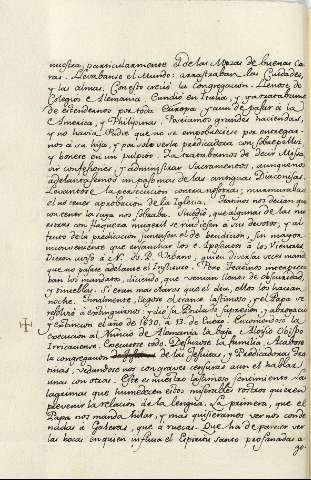 nuestra, particularmente el de las Mozas de buenas Ca
ras. Llevabanse el Mundo: arrastraban las Ciudades,
y las almas. Con esto creció la congregacion. Llenose de
Colegios è Alemania. Cundio en Italia, y ya tratabamos
de estendernos por toda Europa, y aun de pasar à la
America, y Philipinas. Posciamos grandes haciendas,
y no havia Padre que no se empobreciese por entregar
nos à su hija, y por solo verla predicadora con sobrepelliz
y bonete en un pulpito. Ya tratabamos de decir Misa,
oir confesiones, y administrar Sacramentos, aunque no
adelantasemos informes de las antiguas Diaconisas.
Levantose la persecucion contra nosotras; murmurabase
el no tener aprobacion de la Iglesia. Jatinos nos decian que
con tener la suya nos sobraba. Sucedió, que algunas de las nu
estras con flaqueza mugeril se rindiesen à sus devotos, y al
fruto de la predicacion juntasen el de bendicion. Sin mayor
inconveniente que ensanchar los Aposentos à los Vientres.
Dieron aviso à N. SS. P. Urbano, quien diversas veces mandó
que no pasase adelante el Instituto. Pero Jesuitas interpreta
ban los mandatos, diciendo, que venian llenos de obscuridad,
y tinieblas. Si eran mas claros que el dia, ellos los hacian
noche. Finalmente, llegose el trance lastimoso, y el Papa se
resolvió à extinguirnos; y dio la Bula de supresion, y abrogacion,
y extincion el año de 1630, à 13 de Enero. Encomendose la
execucion al Nuncio de Alemania la Baja, Aloysio Obispo
Irriacense. Executose todo. Deshizose la familia. Acabose
la congregacion de las Jesuitas, y Predicadoras Ja
tinas, vedandose nos congresos, censuras aun el hablar
unas con otras. Este es nuestro lastimoso fenecimiento. Las
lagrimas que humedecen estos infelices rostros quieren
prevenir la relacion de la lengua. La primera, que el
Papa nos manda hilar, y mas quisieramos ver nos conde
nadas à Galeras, que à ruecas. Que ha de parecer ver
las bocas en quien influia el Espiritu Santo profanadas a
go-